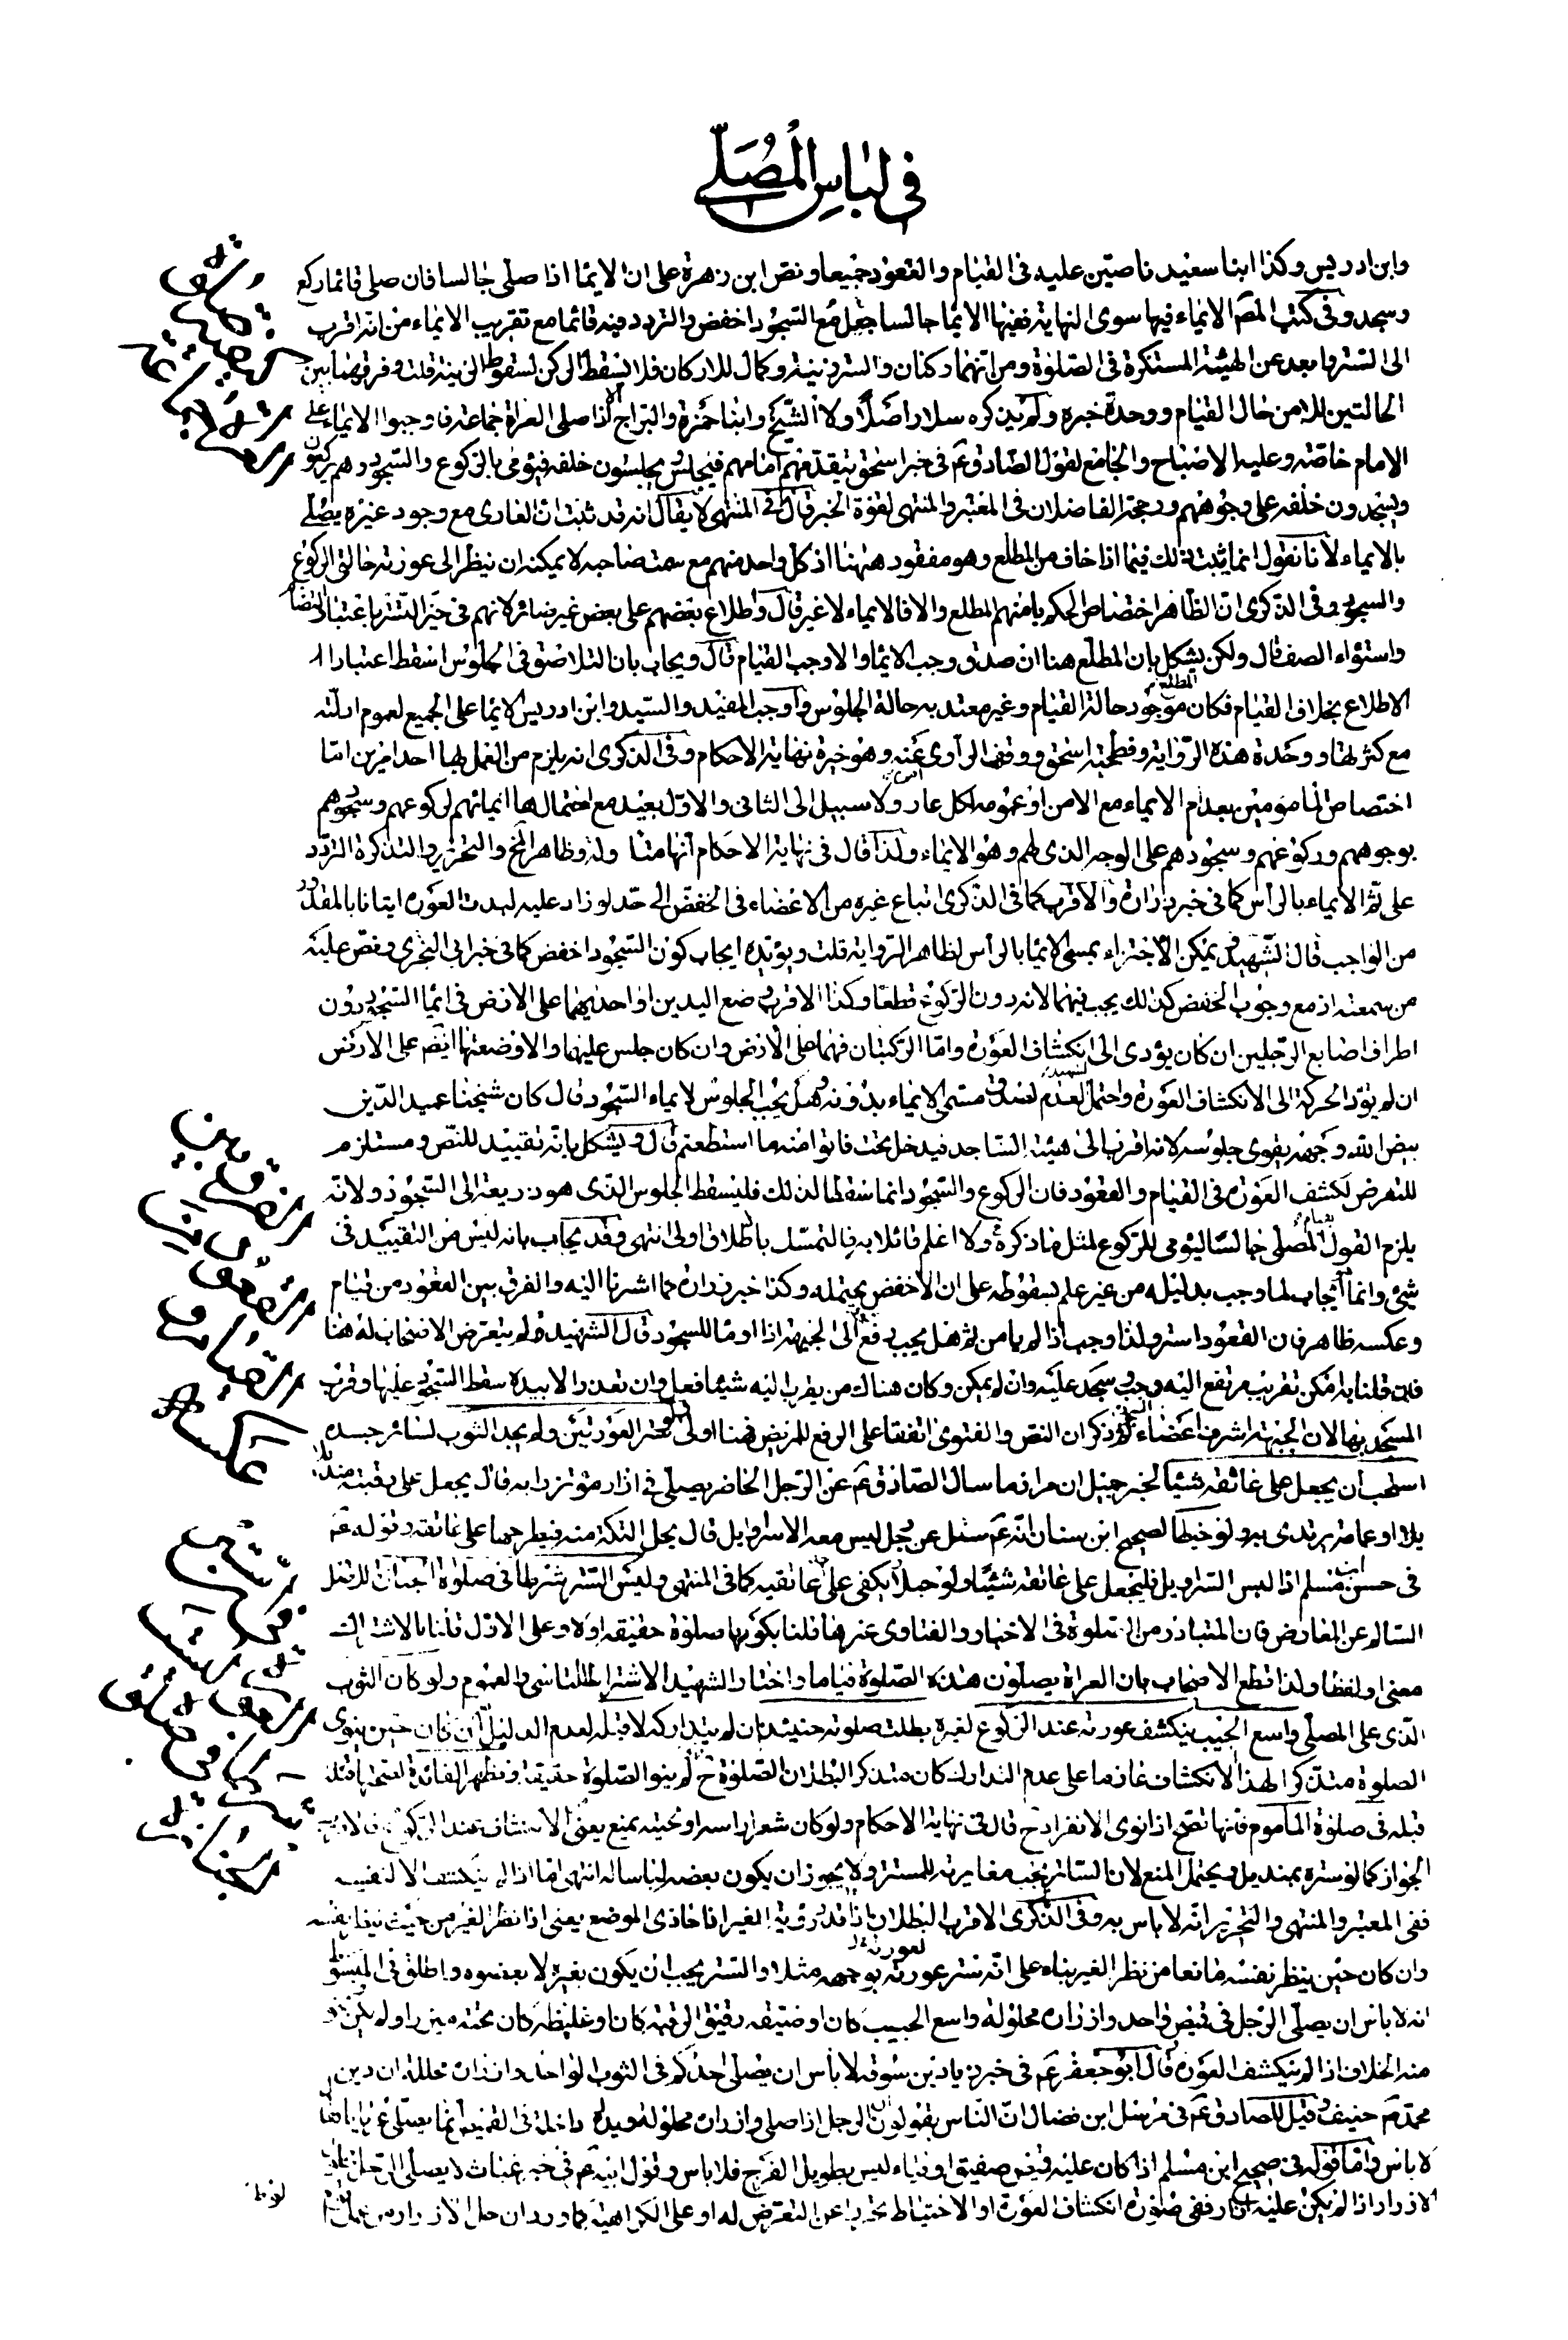 في لباس المصلي
وابن ادريس وكذا ابنا سعيد ناصين عليه في القيام والقعود جميعا ونص ابن زهرة على ان الايماء اذا صلى جالسا فان صلى قائما ركع
وسجد وفي كتب المص الايماء فيها سوى النهاية ففيها الايماء جالسا جعل مع السجود اخفض والتردد فيه قائما مع تقريب الايماء من انه اقرب
الى الستر وابعد عن الهيئة المستنكرة في الصلوة ومن انهما ركنان والستر زينة وكمال للاركان فلا يسقط الركن لسقوط الزينة قلت وفرق هنا بين
الحالتين للامن حال القيام ووحدة خبره ولم يذكره سلار اصلا ولا الشيخ وابنا حمزة والبراج الا اذا صلى العراة جماعة فاوجبوا الايماء على
الامام خاصة وعليه الاصباح والجامع لقول الصادق ع في خبر اسحق يتقدمهم امامهم فيجلس ويجلسون خلفه فيؤمي بالركوع والسجود وهم يركعون
ويسجدون خلفه على وجوههم ورجحه الفاضلان في المعتبر والمنتهى لقوة الخبر قال في المنتهى لا يقال انه قد ثبت ان العاري مع وجود غيره يصلي
بالايماء لانا نقول انما يثبت ذلك فيما اذا خاف من المطلع وهو مفقود ههنا اذ كل واحد منهم مع سمت صاحبه لا يمكنه ان ينظر الى عورته حالتي الركوع
والسجود وفي الذكرى ان الظاهر اختصاص الحكم بامنهم المطلع والا فالايماء لا غير قال واطلاع بعضهم على بعض غير ضائر لانهم في حيز التستر باعتبار التضام
واستواء الصف قال ولكن يشكل بان المطلع هنا ان صدق وجب الايماء والا وجب القيام قال ويجاب بان التلاصق في الجلوس اسقط اعتبار
الاطلاع بخلاف القيام فكان المطلع موجود حالة القيام وغير معتد به حالة الجلوس واوجب المفيد والسيد وابن ادريس الايماء على الجميع لعموم ادلته
مع كثرتها ووحدة هذه الرواية وفطحية اسحق ووقف الراوي عنه وهو خيرة نهاية الاحكام وفي الذكرى انه يلزم من العمل بها احد امرين اما
اختصاص المامومين بعدم الايماء مع الامن او عمومه لكل عار امن ولا سبيل الى الثاني والاول بعيد مع احتمالها ايمائهم لركوعهم وسجودهم
بوجوههم وركوعهم وسجودهم على الوجه الذي لهم وهو الايماء ولذا قال في نهاية الاحكام انها متأولة وظاهر والتحرير والتذكرة التردد
على ثم الايماء بالراس كما في خبر زرارة والاقرب كما في الذكرى اتباع غيره من الاعضاء في الخفض الى حد لو زاد عليه لبدت العورة ايتانا بالمقدور
من الواجب قال الشهيد ويمكن الاجتزاء بمسمى الايماء بالراس لظاهر الرواية قلت ويؤيده ايجاب كون السجود اخفض كما في خبر ابي البختري ونص عليه
من سمعته اذ مع وجوب الخفض كذلك يجب فيهما لانه دون الركوع قطعا وكذا الاقرب وضع اليدين او احديهما على الارض في ايماء السجود دون
اطراف اصابع الرجلين ان كان يؤدي الى انكشاف العورة واما الركبتان فهما على الارض وان كان جلس عليهما والا وضعتها ايضا على الارض
ان لم يؤد الحركة الى الانكشاف العورة واحتمل الشهيد العدم لصدق مسمى الايماء بدونه وهل يجب الجلوس لايماء السجود قال كان شيخنا عميد الدين
بيض الله وجهه يقوى جلوسه لانه اقرب الى هيئة الساجد فيدخل تحت فاتوا منه ما استطعتم قال ويشكل بانه تقييد للنص ومستلزم
للتعرض لكشف العورة في القيام والقعود فان الركوع والسجود انما سقطا لذلك فليسقط الجلوس الذي هو ذريعة الى السجود ولانه
يلزم القول بقيام المصلي جالسا ليومي للركوع لمثل ما ذكره ولا اعلم قائلا به فالتمسك بالاطلاق اولى انتهى وقد يجاب بانه ليس من التقييد في
شيئ وانما ايجاب لما وجب بدليله من غير علم بسقوطه على ان الاخفض يحتمله وكذا خبر زرارة كما اشرنا اليه والفرق بين القعود من قيام
وعكسه ظاهر فان القعود استر ولذا وجب اذا لم يامن ثم هل يجب رفع شئ الى الجبهة اذا اومأ للسجود قال الشهيد لم يتعرض الاصحاب له هنا
فان قلنا به امكن تقريب مرتفع اليه وجب وسجد عليه وان لم يمكن وكان هناك من يقرب اليه شيئا فعل وان تعذر الا بيده سقط السجود عليها وقرب
المسجد بها لان الجبهة اشرف اعضاء السجود وذكر ان النص والفتوى اتفقا على الرفع للمريض فهنا اولى ولو ستر العورتين ولم يجد الثوب لسائر جسده
استحب ان يجعل على عاتقه شيئا لخبر جميل ان مرازما سال الصادق ع عن الرجل الحاضر يصلي في ازار مؤتزرا به قال يجعل على رقبته منديلا
او عمامة يرتدي به ولو خيطا لصحيح ابن سنان انه ع سئل عن رجل ليس معه الا سراويل قال يحل التكة منه فيطرحها على عاتقه وقوله ع
في حسن ابن مسلم اذا لبس السراويل فليجعل على عاتقه شيئا ولو حبلا ويكفي على عاتقيه كما في المنتهى وليس الستر شرطا في صلوة الجنازة للاصل
السالم عن المعارض فان المتبادر من الصلوة في الاخبار والفتاوى غيرها قلنا بكونها صلوة حقيقة اولا وعلى الاول قلنا بالاشتراك
معنى او لفظا ولذا قطع الاصحاب بان العراة يصلون هذه الصلوة قياما واختار الشهيد الاشتراط للتاسي والعموم ولو كان الثوب
الذي على المصلي واسع الجيب ينكشف عورته عند الركوع لغيره بطلت صلوته حينئذ ان لم يتداركه لا قبله لعدم الدليل الا ان كان حين ينوي
الصلوة متذكرا لهذا الانكشاف عازما على عدم التدارك كان متذكر البطلان الصلوة ح لم ينو الصلوة حقيقة وتظهر الفائدة لصحتها قبله
قبله في صلوة المأموم فانها تصح اذا نوى الانفراد ح قال في نهاية الاحكام ولو كان شعر راسه او لحيته يمنع يعني الانكشاف عند الركوع فالاقرب
الجواز كما لو ستره بمنديل ويحتمل المنع لان الساتر يجب مغايرته للمستتر ولا يجوز ان يكون بعضه لباسا له انتهى اما اذا لم ينكشف الا لنفسه
ففي المعتبر والمنتهى والتحرير انه لا باس به وفي الذكرى الاقرب البطلان اذا قدر رؤية الغير اذا حاذى الموضع يعني اذا نظر الغير من حيث ينظر نفسه
وان كان حين ينظر نفسه مانعا من نظر الغير بناء على انه ستر عورته بوجهه مثلا والستر يجب ان يكون بغيره لا بعضوه واطلق في المبسوط
انه لا باس ان يصلي الرجل في قميص واحد وازراره محلولة واسع الجيب كان او ضيقه رقيق الرقبة كان او غليظه كان تحته ميزر او لم يكن
منه الخلاف اذا لم ينكشف العورة قال ابو جعفر ع في خبر زياد بن سوقة لا بأس ان يصلي احدكم في الثوب الواحد وازراره محللة ان دين
محمد ص حنيف وقيل للصادق ع في مرسل ابن فضال ان الناس يقولون ان الرجل اذا صلى وازراره محلولة ويداه داخلة في القميص انما يصلي عريانا قال
لا باس واما قوله في صحيح ابن مسلم اذا كان عليه قميص صفيق او قباء ليس بطويل الفرج فلا باس وقول ابيه ع في خبر غياث لا يصلي الرجل محلول
الازرار اذا لم يكن عليه ازار ففي صورة انكشاف العورة او الاحتياط تحرزا عن التعرض له او على الكراهية كما ورد ان حل الازرار من عمل قوم
لوط